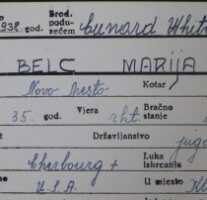 1938. god. Brod. podu-
zećem Cunard White
BELC MARIJA
Novo Mesto Kotar
35. god. Vjera rkt. Bračno
stanje
t Državljanstvo jugo
Cherbourg + Luka
iskrcanja
U.S.A. U mjesto